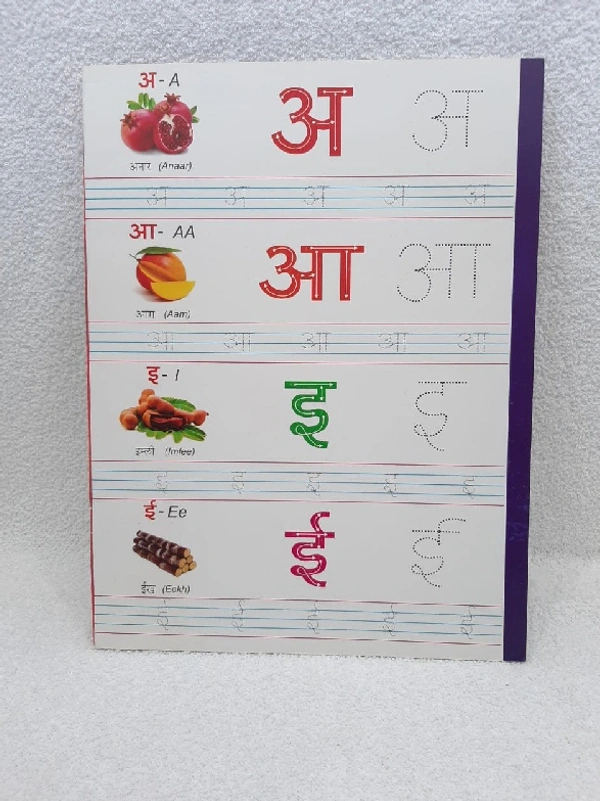 अ - A अ अ
अनार (Anaar)
अ अ अ अ अ
आ - AA आ आ
आम (Aam)
आ आ आ आ आ
इ - I इ इ
इमली (Imlee)
इ इ इ इ इ
ई - Ee ई ई
ईख (Eekh)
ई ई ई ई ई